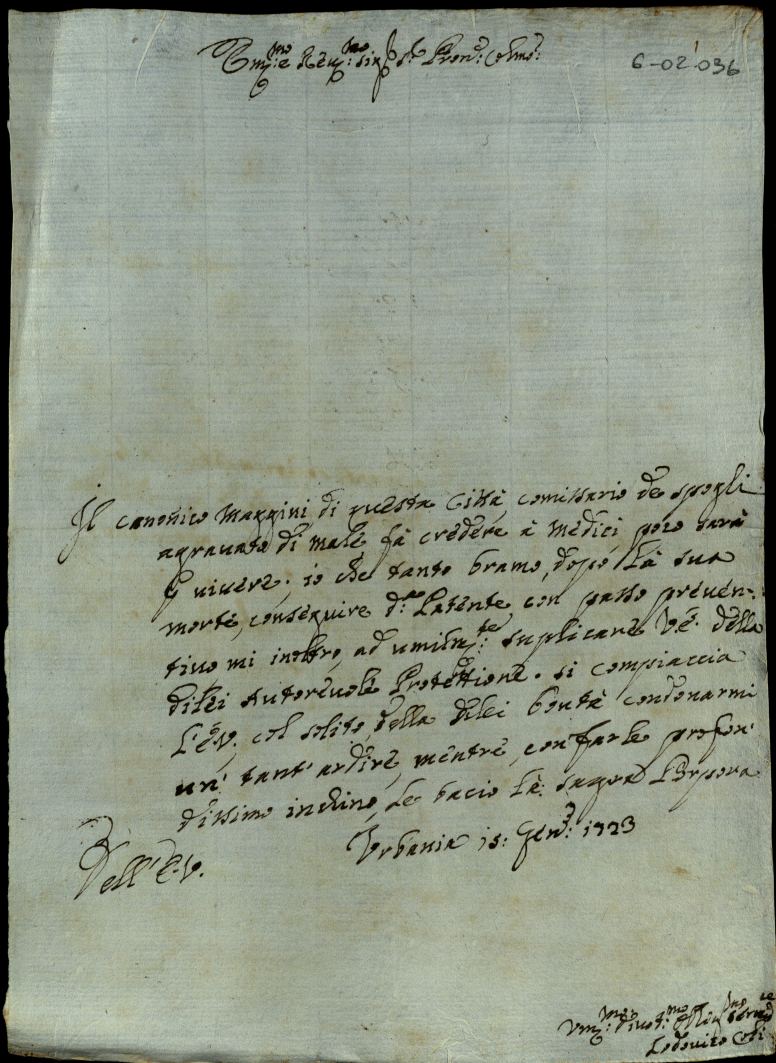 Em:mo e Rev:mo Sig.r Sr. Pron: Colmo:
6-02-036
Il Canonico Maggini di questa Città comissario de spogli
agravato di male fà credere à medici, poco sarà
p vivere; io che tanto bramo, dopò là sua
morte, conseguire d:a Patente con passo preven=
tivo, mi inoltro, ad umilm:te suplicare V.E. della
dilei Autorevole Protettione. si compiaccia
L'E.V. col solito della dilei bontà condonarmi
un' tant' ardire, mentre, con farle profon'
dissimo inchino, le bacio là sagra Porpora
Urbania 15: Gen:o 1723
Dell' E.V.
Um:mo Divot:mo
Lodovico